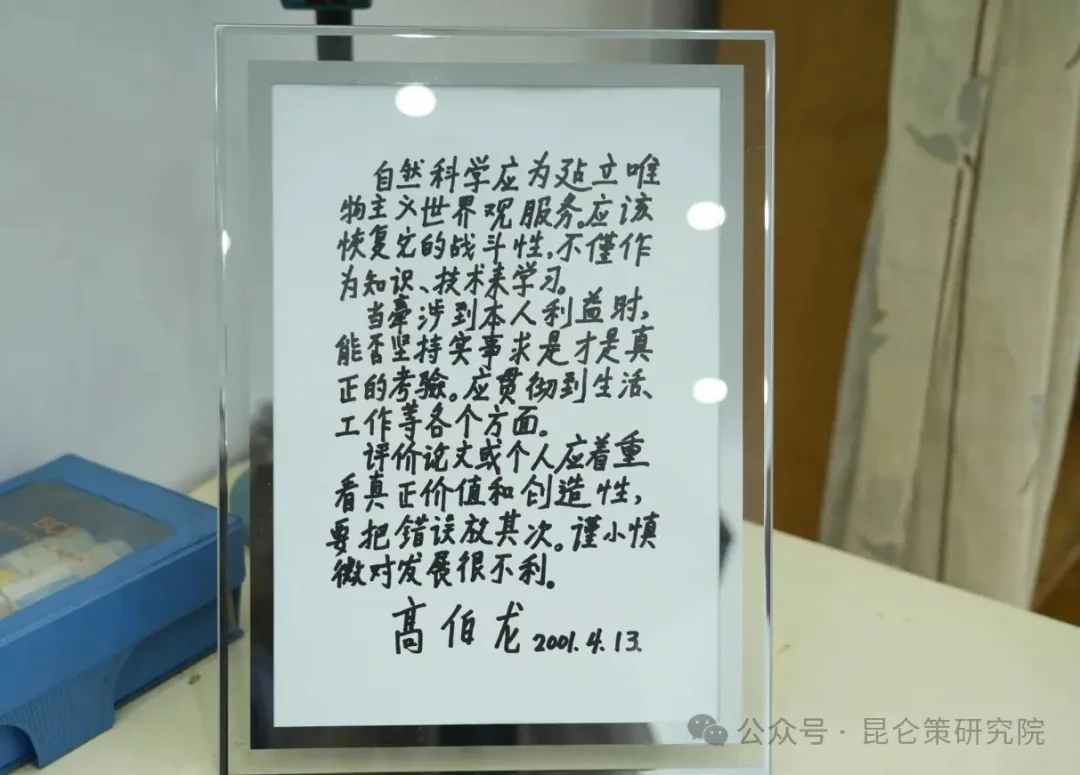 自然科学应为建立唯
物主义世界观服务。应该
恢复它的战斗性,不僅作
为知识、技术来学习。
当牵涉到本人利益时,
能否坚持实事求是才是真
正的考驗。应贯彻到生活、
工作等各个方面。
评价论文或个人应着重
看真正价值和创造性,
要把错误放其次。谨小慎
微对发展很不利。
高伯龙 2001.4.13.
公众号·昆仑策研究院